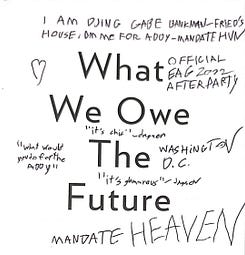 I AM DJING GABE BANKMAN-FRIED'S
HOUSE, DM ME FOR ADDY - MANDATE HVN
What OFFICIAL
EAG 2022
AFTERPARTY
We Owe
"it's chic" - Jayson
The WASHINGTON
D.C.
"what would
you do for the
ADDY"
"it's glamorous" - Jayson
Future
MANDATE HEAVEN